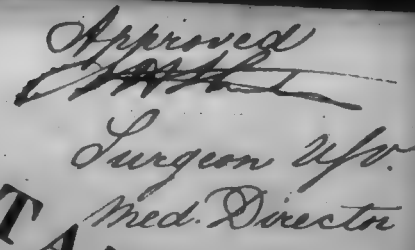 Approved
Surgeon USV.
Med. Director
TA